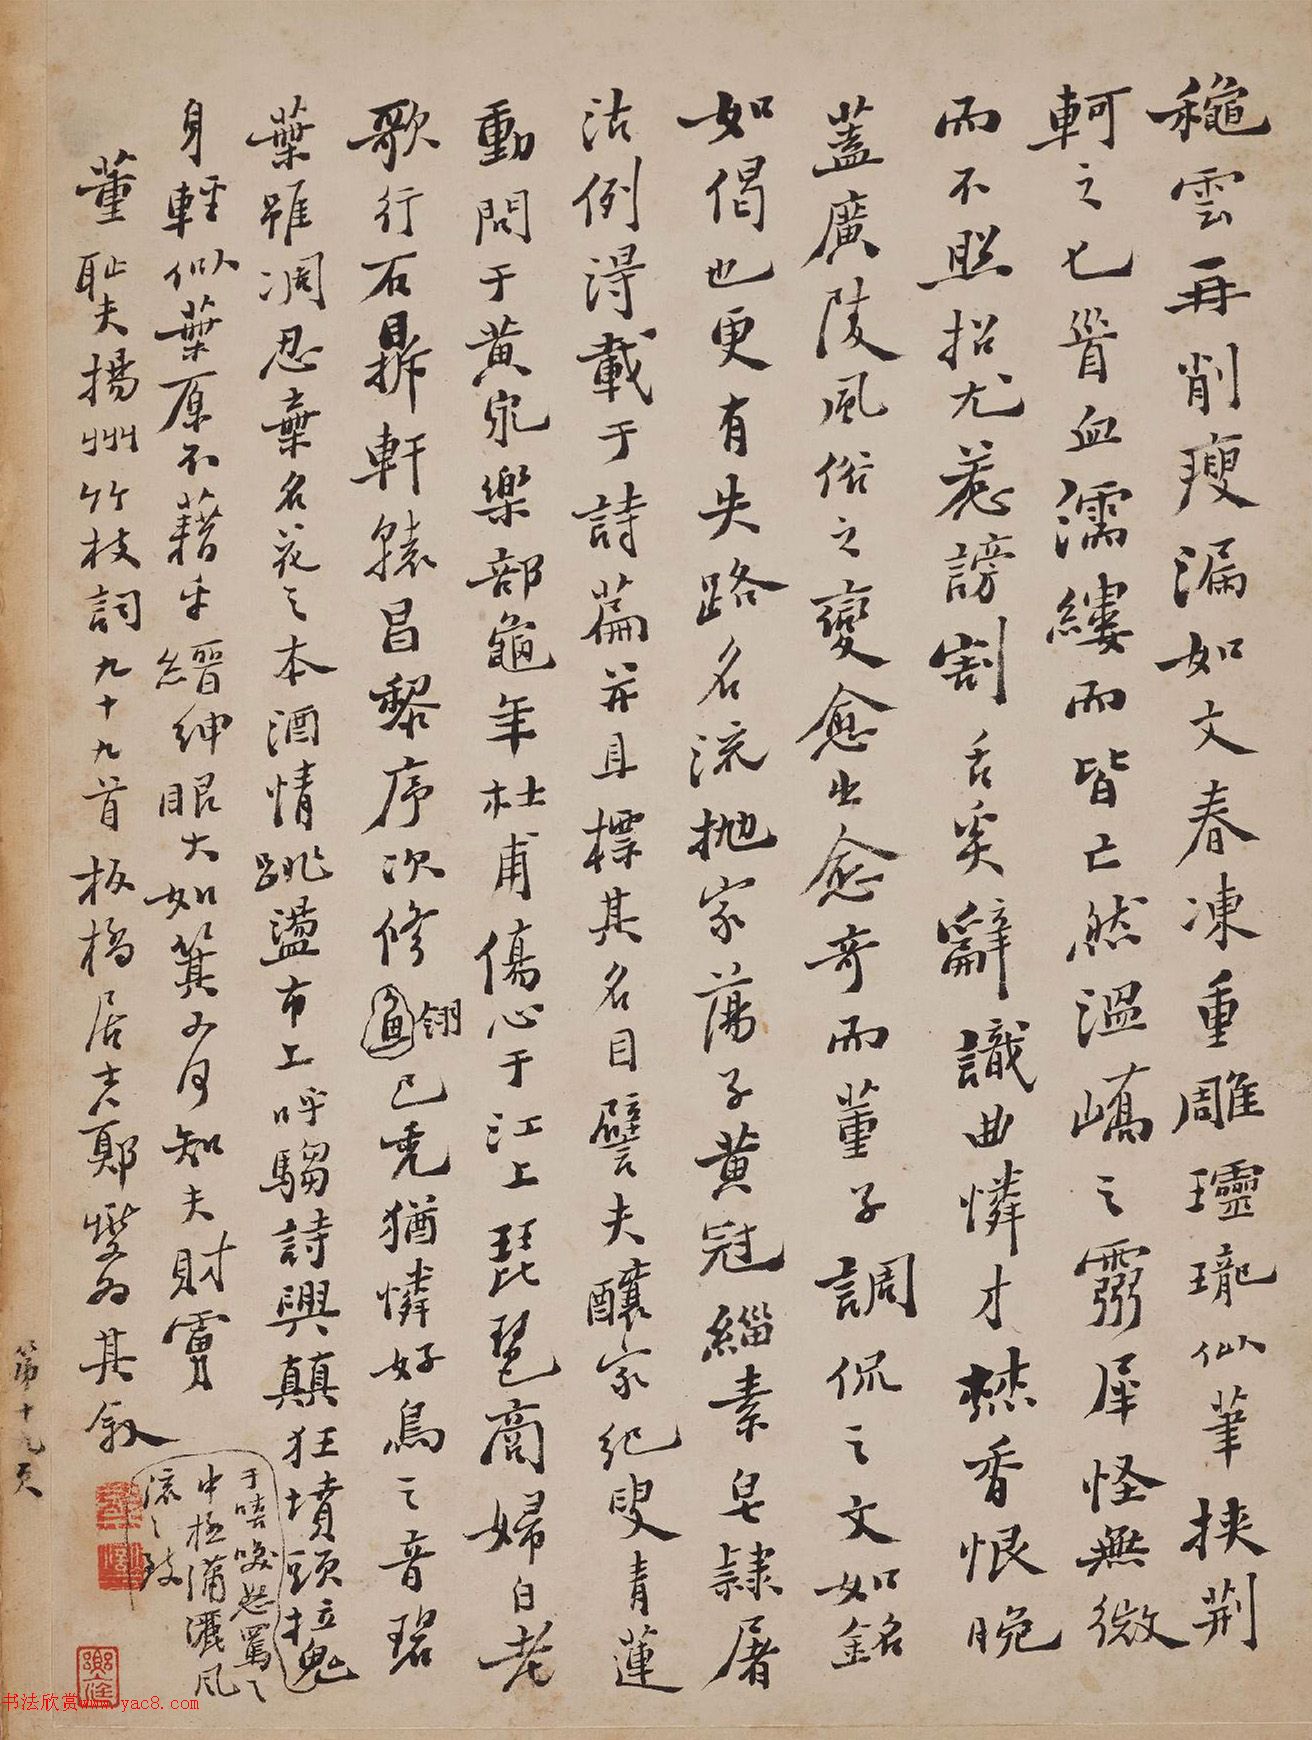 穐雲再削瘦漏如文春凍重雕璽瓏似筆挾荊
軻之匕首血濡縷而皆亡然溫嶠之靈犀怪無微
而不照招尤惹謗割舌奚辭識曲憐才焚香恨晚
蓋廣陵風俗之變愈出愈奇而董子調侃之文如銘
如偈也更有失路名流拋家蕩子黃冠緇素皂隸屠
沽例得載于詩篇并且標其名目譬夫釀家紀叟青蓮
動問于黃泉樂部龜年杜甫傷心于江上琵琶商婦白老
歌行石鼎軒轅昌黎序次修翎已禿猶憐好鳥之音碧
葉雖凋忍棄名花之本酒情跳盪市上呼騶詩興顛狂墳頭拉鬼
于嘻笑怒罵之
中極瀟灑風
流之致
身輕似葉原不藉乎縉紳眼大如箕又何知夫財虜
董恥夫揚州竹枝詞九十九首板橋居士鄭燮為其敘
第十九頁
书法欣赏www.yac8.com